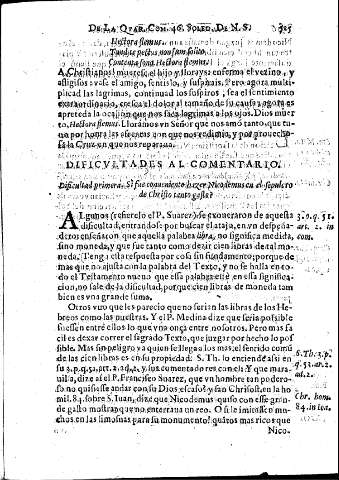 DE LA QVAR. COM. 46. SOLED. DE N. S.
Hectora flemus.
Tundite pectus non sum solito.
Contenta sono Hectora flemus.
A Christianos! muerese el hijo y llorays: enferma el vezino, y
afligisos: vase el amigo, sentislo, y suspirays. Pero agora multi-
plicad las lagrimas, continuad los suspiros; sea el sentimiento
extraordinario, crezca el dolor al tamaño de su causa: agora es
apretada la ocasion que nos saca lagrimas a los ojos. Dios muer
to, Hectora flemus. Lloramos vn Señor que nos amò tanto que tu-
uo por honra las afrentas con que nos redimio, y por prouecho-
sa la Cruz en que nos reparaua.
DIFICVLTADES AL COMENTARIO.
Dificultad primera. Si fue conueniente hazer Nicodemus en el sepulcro
de Christo tanto gasto?
ALgunos (referelo el P. Suarez) se exoneraron de aquesta
dificultad, entrandose por buscar el ataja, en vn despeña-
deros enseñaron que aquella palabra libra, no significa medida,
sino moneda, y que fue tanto como dezir cien libras de tal mo-
neda. Tenga esta respuesta por cosa sin fundamento; porque de
mas que no ajusta con la palabra del Texto, y no se halla en to-
do el Testamento nueuo que essa palabra esté en essa significa-
cion, no sale de la dificultad, porque cien libras de moneda tam
bien es vna grande suma.
Otros vuo que les parecio que no serian las libras de los He-
breos como las nuestras. Y el P. Medina dize que seria possible
fuessen entre ellos lo que vna onça entre nosotros. Pero mas fa
cil es dexar correr el sagrado Texto, que juzgar por hecho lo pos
sible. Mas sin peligro va quien se llega a los mas, el sentido comun
de las cien libras es en su propriedad: S. Th. lo entiende assi en
su 3.p.q.51.art.2.ad.2, y sus comentadores con el: Y que mara-
uilla, dize aqui el P. Francisco Suarez, que vn hombre tan podero-
so no quisiesse andar con su Dios escaso? y san Chrisost, en la ho
mil. 84. sobre S. Iuan, dize que Nicodemus quiso con esse gran-
de gasto mostrar que no enterraua vn reo. O si le imitassen mu-
chos en las limosnas para su monumento! quãtos mas rico que
Nico-
3.p.q.51.
art. 2. in
com.
S.Th.3.p.
q.51.ar.2.
ad.2.
Chr. hom.
84. in Ioa.